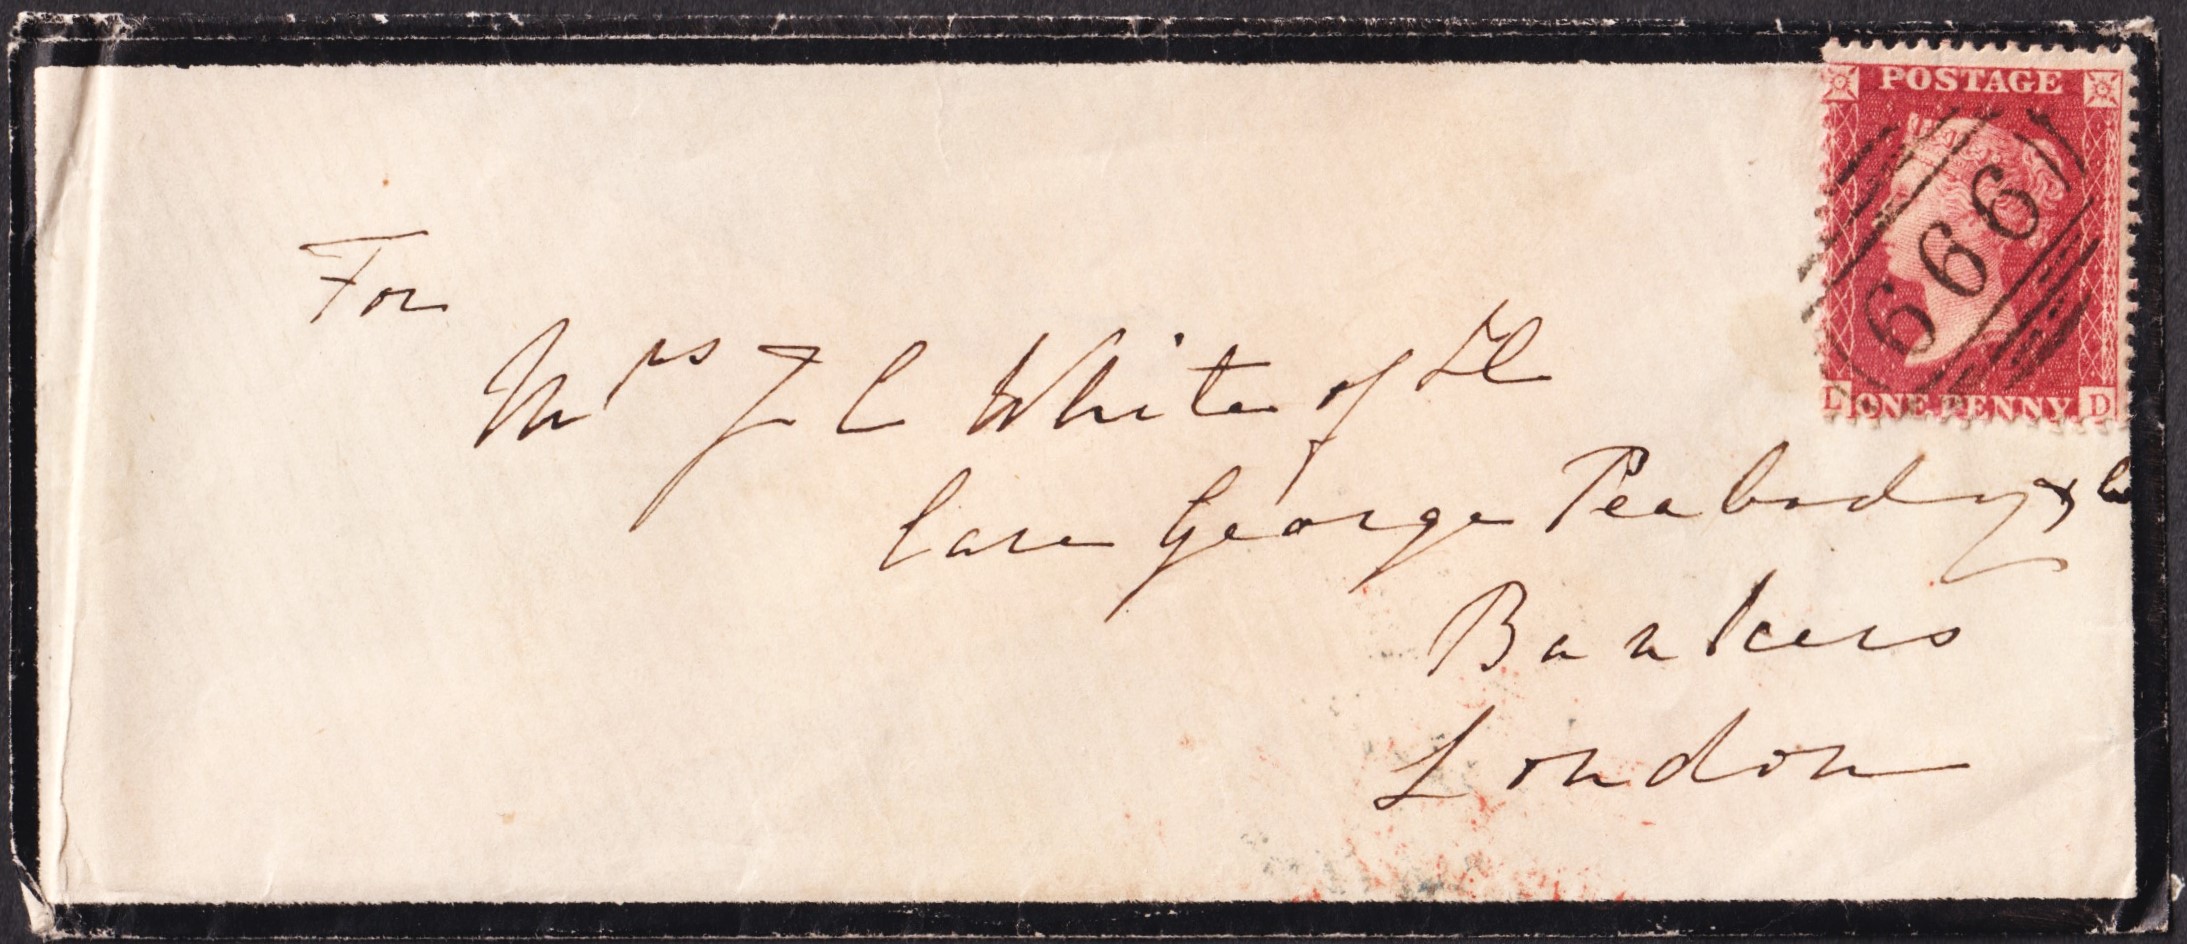 POSTAGE
666
L D
ONE PENNY
For
Mrs J C White of Fl
Care George Peabody & Co
Bankers
London